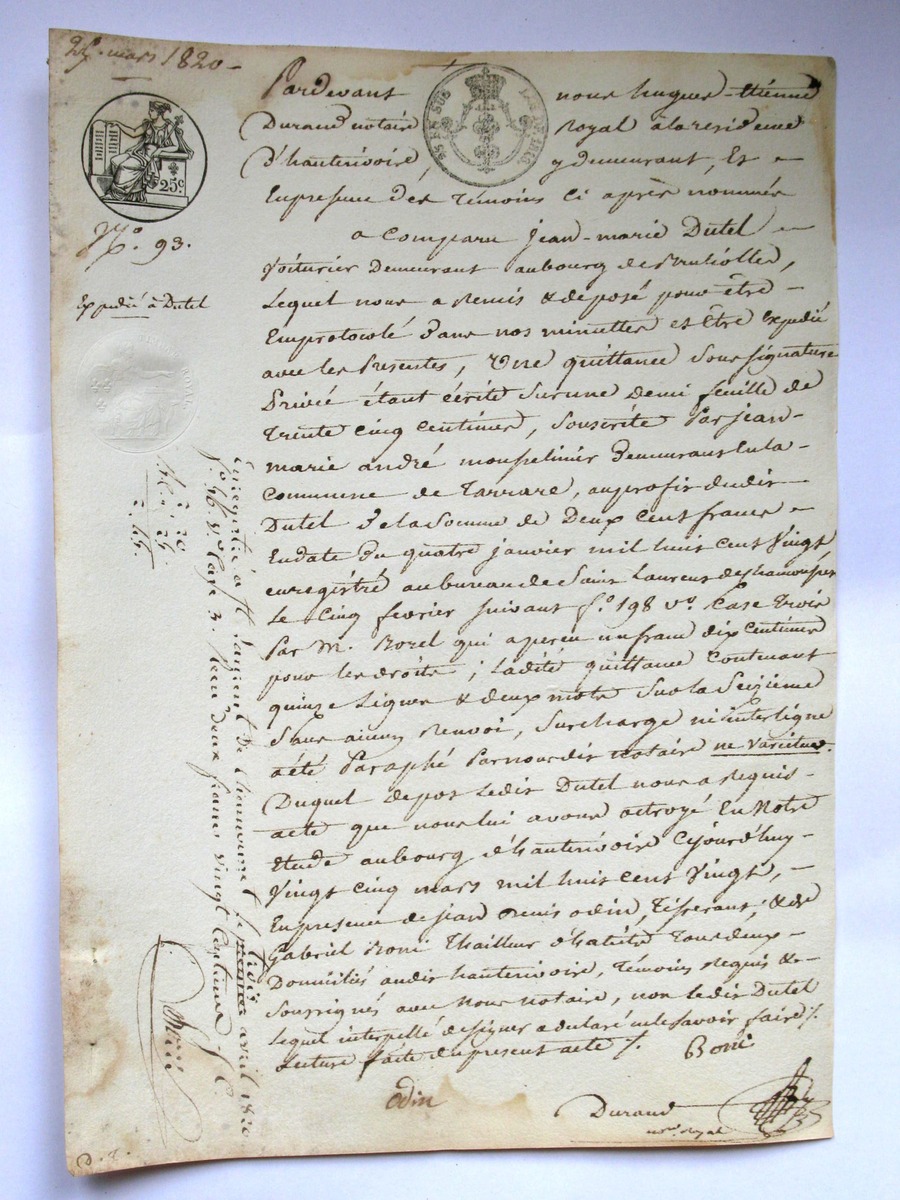 25. mars 1820 –
25c
N.° 93.
Expédié à Dutel
Pardevant nous hugues-étienne
Durand notaire Royal à la residence
d'hauterivoire, y demeurant, Et
En presence des témoins ci après nommés
a comparu jean-marie Dutel
Voiturier demeurant au bourg de
Lequel nous a remis & deposé pour être
Emprotocolé dans nos minuttes et Être expedié
avec les Presentes, Une quittance Sous signature
Privée étant écrite sur une demi feuille de
trente cinq centimes, souscrite Par jean-
marie andré monpelinier Demeurant en la
Commune de tarrare, au profit du dit
Dutel de la Somme de Deux cent francs
En date du quatre janvier mil huit cent Vingt,
enregistré au bureau de Saint Laurent de chamousset
Le Cinq fevrier suivant f.° 198 v.° Case trois
Par m. Borel qui a perçu un franc dix centimes
pour les droits ; Ladite quittance contenant
quinze Lignes & deux mots sur la Seizieme
Sans aucun Renvoi, surcharge ni interligne
a été Paraphé Par nous dit notaire ne Varietur.
Duquel depot Ledit Dutel nous a Requis
acte que nous lui avons octroyé En Notre
Etude au bourg d'hauterivoire Cejourd'huy
Vingt cinq mars mil huit cent Vingt,
En presence de jean denis odin, tisserant, & de
Gabriel Boni thailleur d'habits tous deux
Domiciliés audit hauterivoire, témoins Requis &
Soussignés avec Nous notaire, non ledit Dutel
Lequel interpellé de signer a declaré ne le savoir faire ./.
Lecture faite du present acte ./. Boni
odin
Durand
not. royal
Enregistré à St Laurent de chamousset le trois avril 1820
f.° 46 v.° Case 3. Reçu deux francs vingt centimes
2. 20